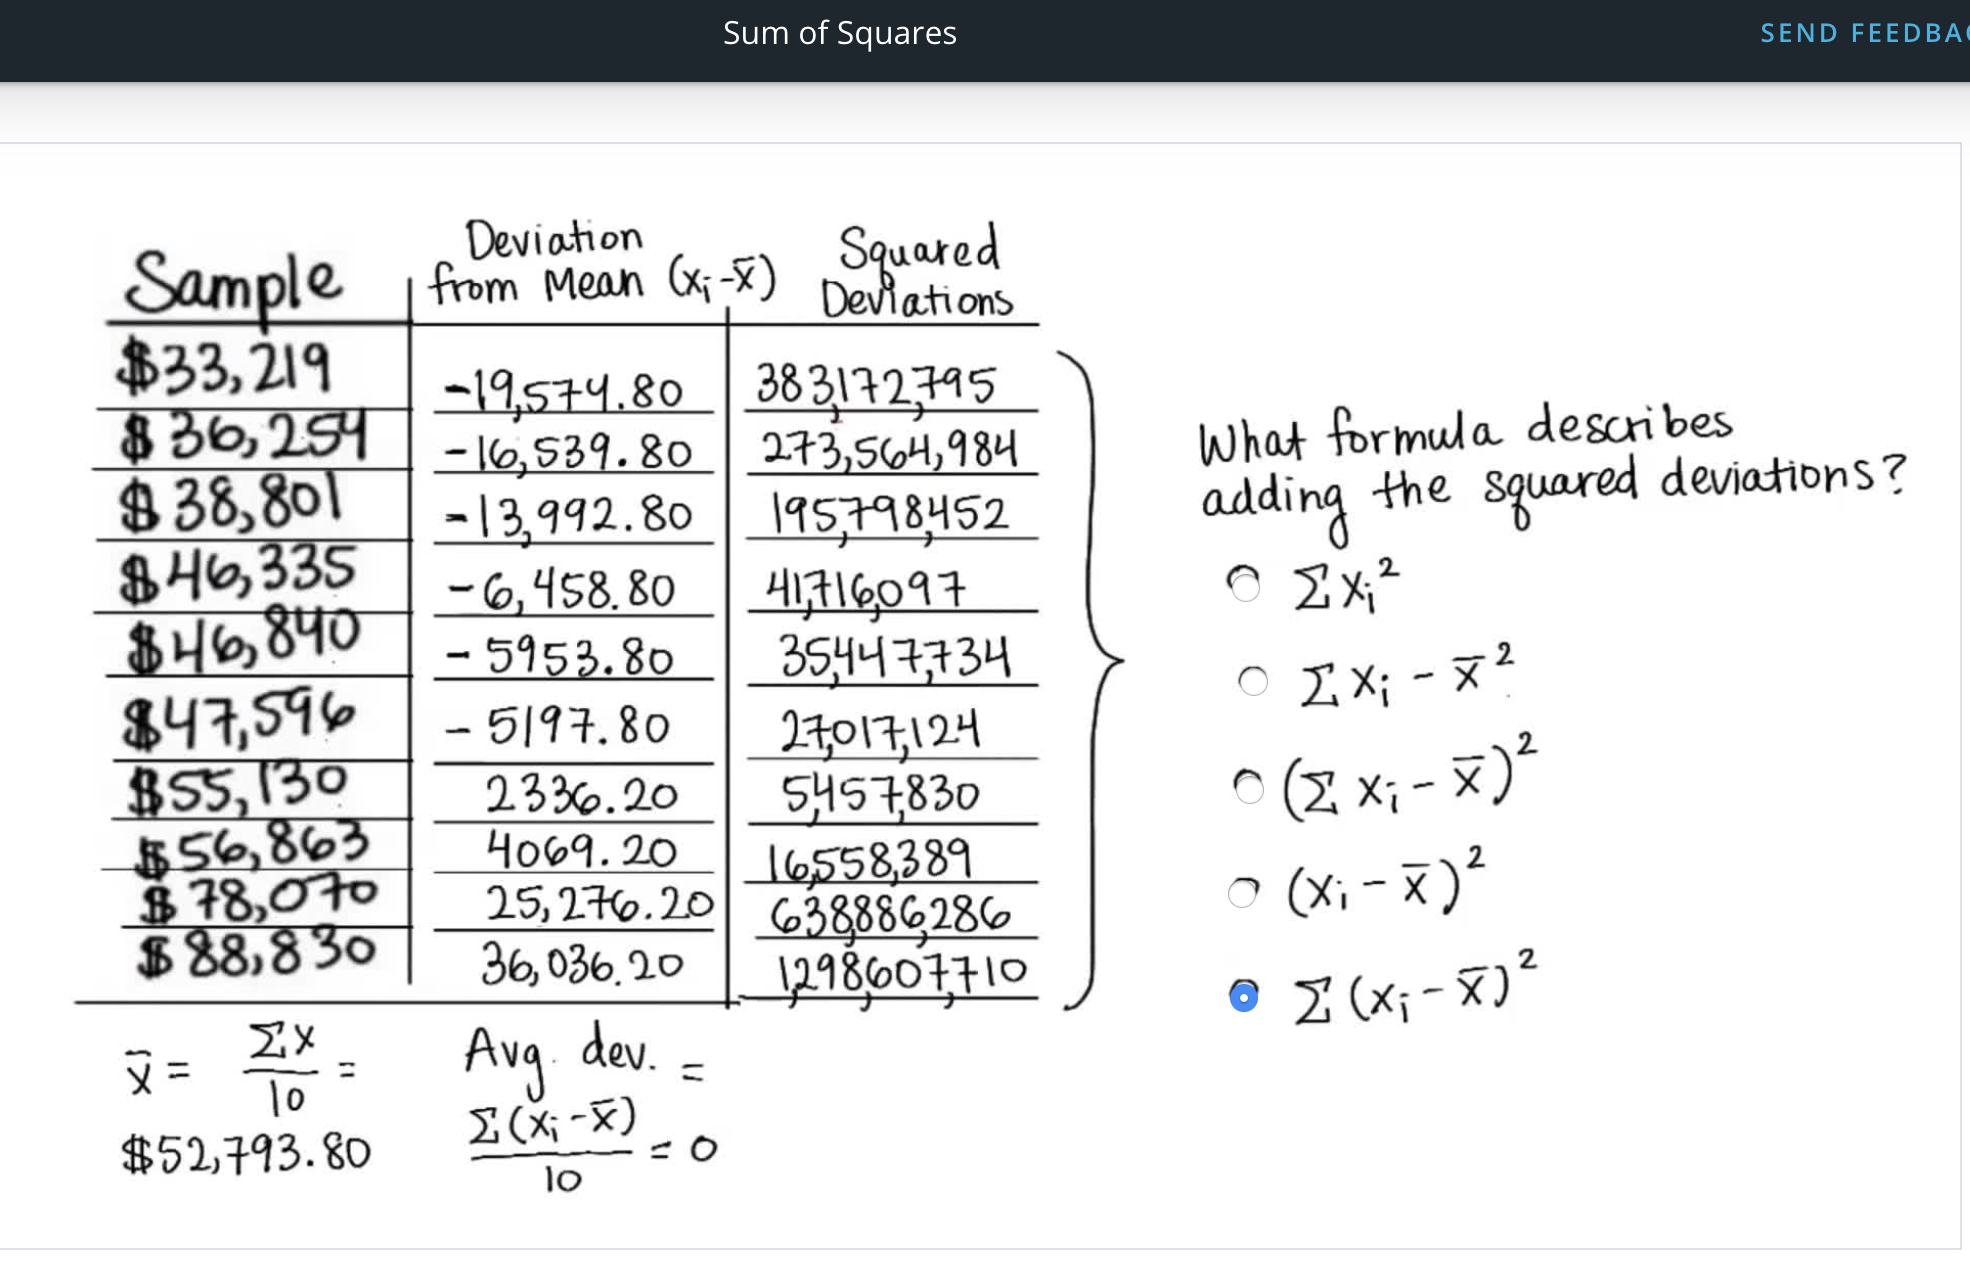 Sum of Squares
SEND FEEDBA
Sample
Deviation
from Mean (xᵢ-x̄)
Squared
Deviations
$33,219 -19,574.80 383,172,795
$36,254 -16,539.80 273,564,984
$38,801 -13,992.80 195,798,452
$46,335 -6,458.80 41,716,097
$46,840 -5953.80 35,447,734
$47,596 -5197.80 27,017,124
$55,130 2336.20 5,457,830
$56,863 4069.20 16,558,389
$78,070 25,276.20 638,886,286
$88,830 36,036.20 1,298,607,710
x̄ = Σx
10 =
$52,793.80
Avg. dev. =
Σ(xᵢ-x̄)
10 = 0
What formula describes
adding the squared deviations?
Σxᵢ²
Σxᵢ - x̄²
(Σxᵢ - x̄)²
(xᵢ - x̄)²
Σ(xᵢ - x̄)²